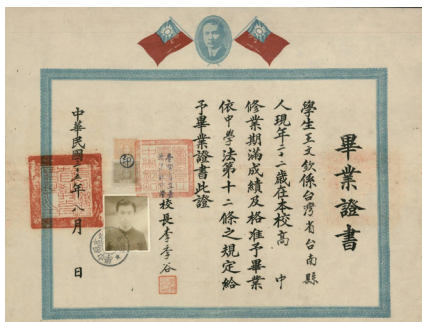 畢業證書
學生王文欽係台灣省台南縣
人現年二十二歲在本校高中
修業期滿成績及格准予畢業
依中學法第十二條之規定給
予畢業證書此證
校長李季谷
中華民國三十五年八月 日